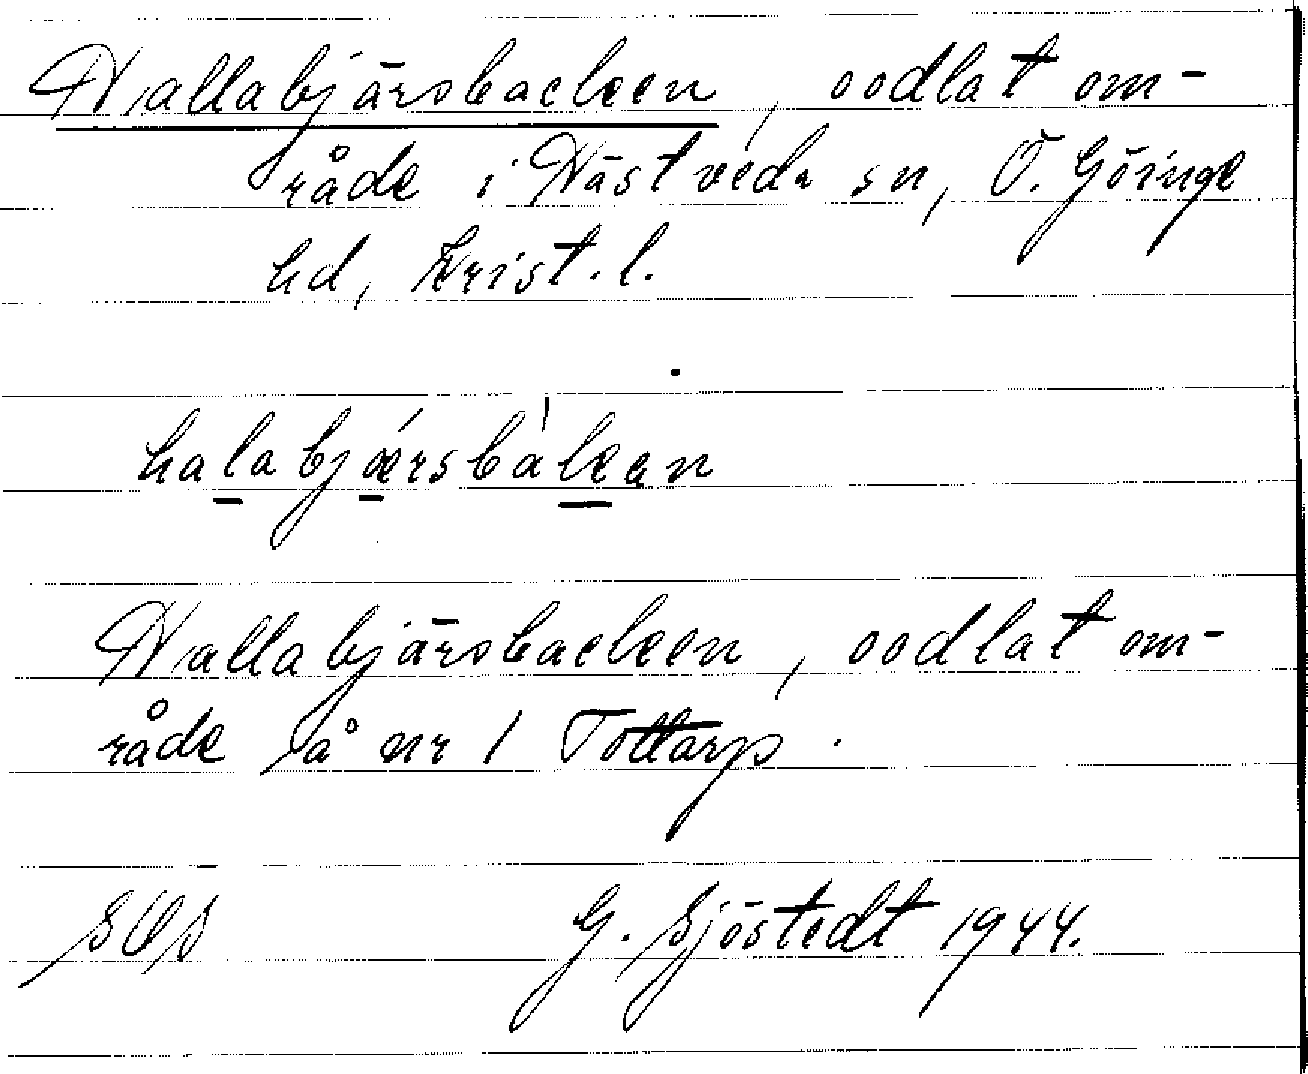 Hallabjärsbacken, oodlat om-
råde i Hästveda sn, Ö. Göinge
hd, Krist. l.
halabjærsbàkan
Hallabjärsbacken, oodlat om-
råde på nr 1 Tottarp.
SOS G. Sjöstedt 1944.